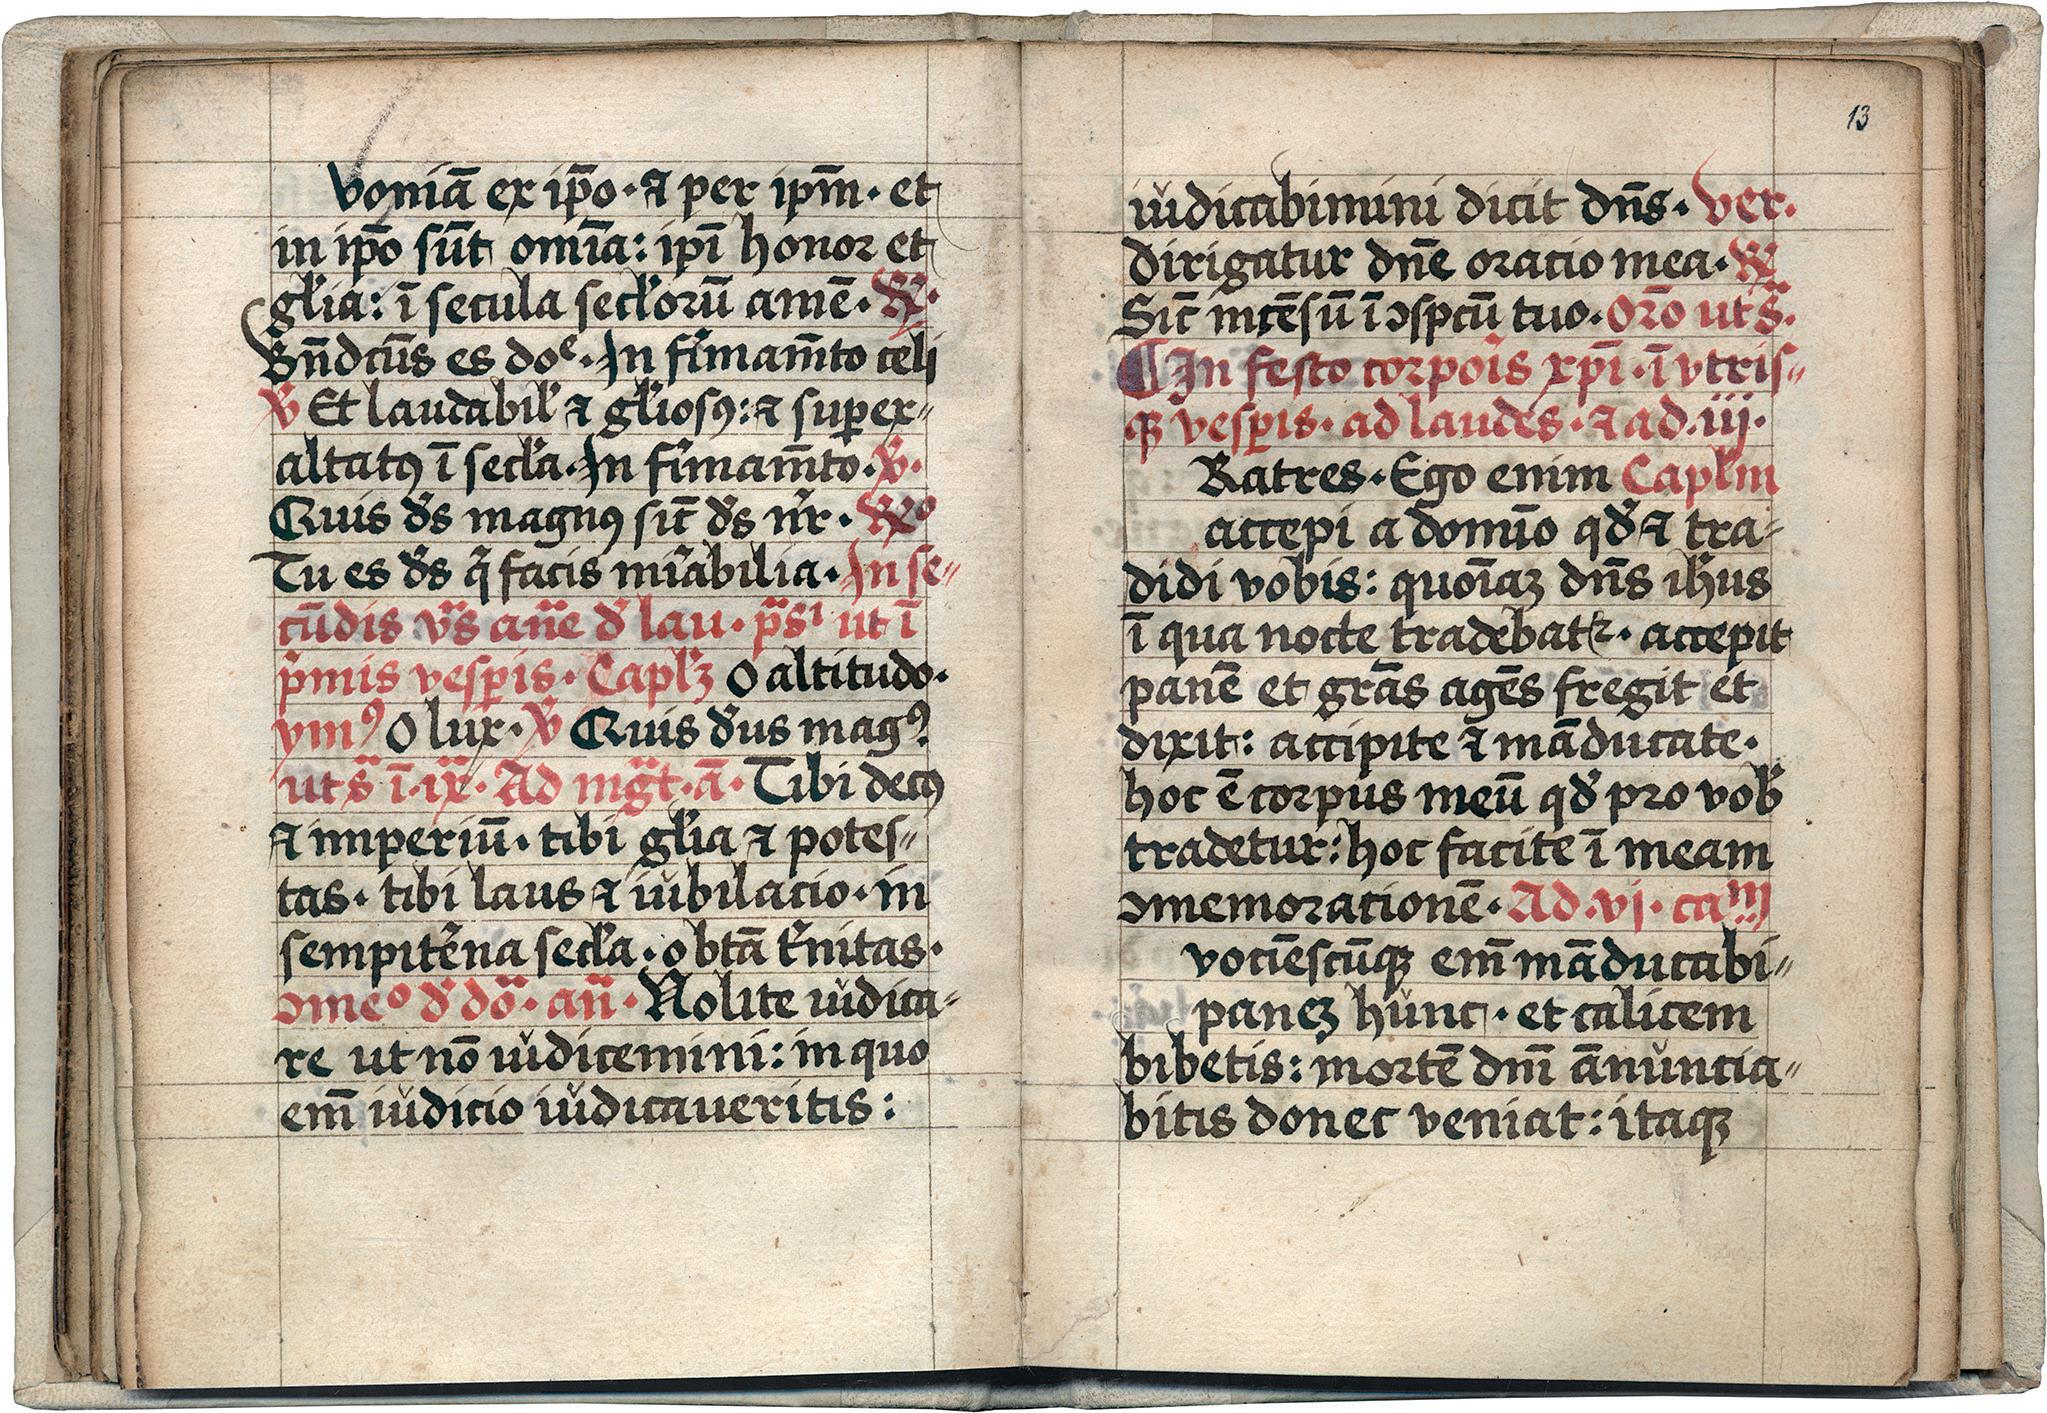 voniā ex ip̄o · ⁊ per ip̄m · et
in ip̄o sūt omīa : ip̄i honor et
gl̄ia : ī secula secl̄orū amē · ℟ ·
Bn̄dcūs es doᵉ · In firmam̄to celi
℣ Et laudabil̄ ⁊ gl̄iosꝰ : ⁊ super〃
altatꝰ ī secl̄a · In firmam̄to · ℣ ·
Quis ds̄ magnꝰ sic̄ ds̄ nr̄ · ℟º
Tu es ds̄ q̄ facis mirabilia · In se〃
cūdis vs̄ ane d̄ lau · ps̄ı ut ī
pͥmis vesꝑis · Capl̄ꝫ O altitudo ·
ymꝰ O lux · ℣ Quis dus magꝰ.
ut s̄ ī · ix · Ad mḡt · ā · Tibi decꝰ
⁊ imperiū · tibi gl̄ia ⁊ potes〃
tas · tibi laus ⁊ iŭbilacio · in
sempitēna secl̄a · o btā tͥnitas ·
ↄmeº d̄ dō · an̄ · Nolite iŭdica〃
re ut nō iŭdicemini : in quo
em̄ iŭdicio iŭdicaueritis :
13
iŭdicabimini dicit dn̄s · ver ·
dirigatur dn̄e oracio mea · ℟
Sic̄ incēsū ī ↄspcū tuo · Oro ut s̄ ·
¶ In festo corpois xp̄i · ī vtris〃
ꝙ vesꝑis · ad laudes · ⁊ ad · iij ·
Ratres · Ego enim Capl̄m
accepi a domīo qd̄ ⁊ tra〃
didi vobis : quoīaꝫ dn̄s ih̄us
ī qua nocte tradebatꝛ · accepit
panē et grās agēs fregit et
dixit : accipite ⁊ māducate ·
hoc ē corpus meū qd̄ pro vob̄
tradetur : hoc facite ī meam
ↄmemorationē · Ad · vj · caᵐ
vociēscūqꝫ em̄ māducabi〃
paneꝫ hŭnc · et calicem
bibetis : mortē dn̄i ānŭncia〃
bitis donec veniat : itaqꝫ